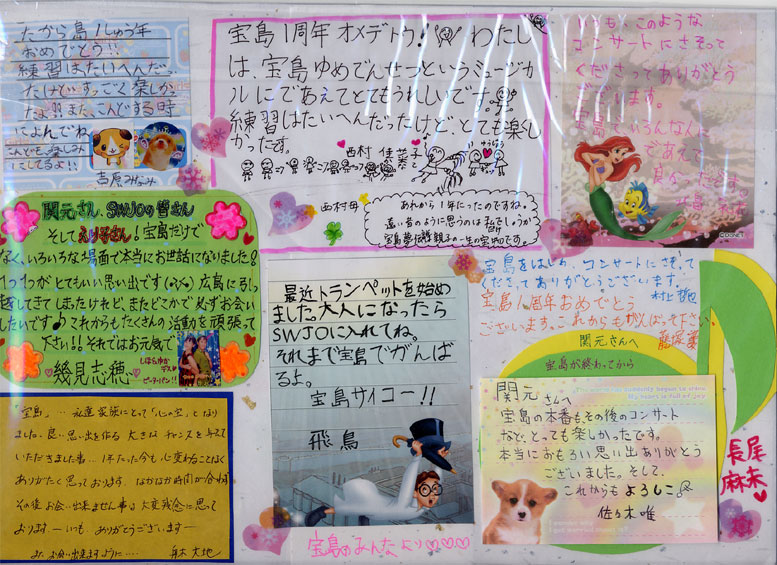 たから島1しゅう年
おめでとう!!
練習はたいへんだっ
たけど、すっごく楽しか
たよ!!また、こんどする時
によんでね
こんどを楽しみ
にしてるよ!!
吉原みなみ
宝島1周年オメデトウ! わたし
は、宝島ゆめでんせつというミュージカ
ルにであえてとてもうれしいです。
練習はたいへんだったけど、とても楽し
かったです。
西村 佳菜子
西村母
あれから1年にったのですね。
遠い昔のように思うのは私だけでしょうか
宝島夢伝説親子の一生の宝物です。
いつも、このような
コンサートにさそって
くださってありがとう
ございます。
宝島でいろんな人
であえて
©DISNEY
関元さん、SWJOの皆さん
そしてえり子さん!宝島だけで
なく、いろいろな場面で本当にお世話になりました!
1つ1つが、とてもいい思い出です 広島に引っ
越してきてしまったけれど、またどこかで必ずお会い
したいです♪これからもたくさんの活動を頑張って
下さい!!それではお元気で
幾見志穂
最近トランペットを始め
ました。大人になったら
SWJOに入れてね。
それまで宝島でがんば
るよ。
宝島サイコー!!
飛鳥
宝島のみんなより♡♡♡
宝島をはじめ、コンサートにさそって
くださってありがとうございます。
宝島1周年おめでとう
ございます。これからもがんばって下さい。
関元さんへ
宝島が終わってから
関元さんへ
宝島の本番も、その後のコンサート
など、とっても楽しかったです。
本当におもろい思い出ありがとう
ございました。そして、
これからもよろしこ♪
佐々木 唯
長尾
麻未
「宝島」… 永遠家族にとって「心の宝」となり
ました。良い思い出を作る 大きなチャンスを与えて
いただきました事… 1年たった今も心変わることなく
ありがたく思っております。なかなか時間が合わず
その後お会い出来ません事は大変残念に思って
おります ーいつも ありがとうございますー
又、お会い出来ますように…